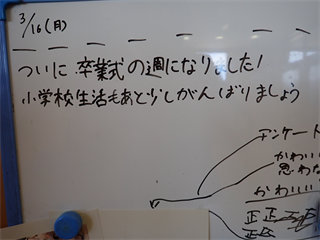 3/16(月)
ついに卒業式の週になりました!
小学校生活もあと少しがんばりましょう
アンケート
かわい
思わな
かわいい
正正
正